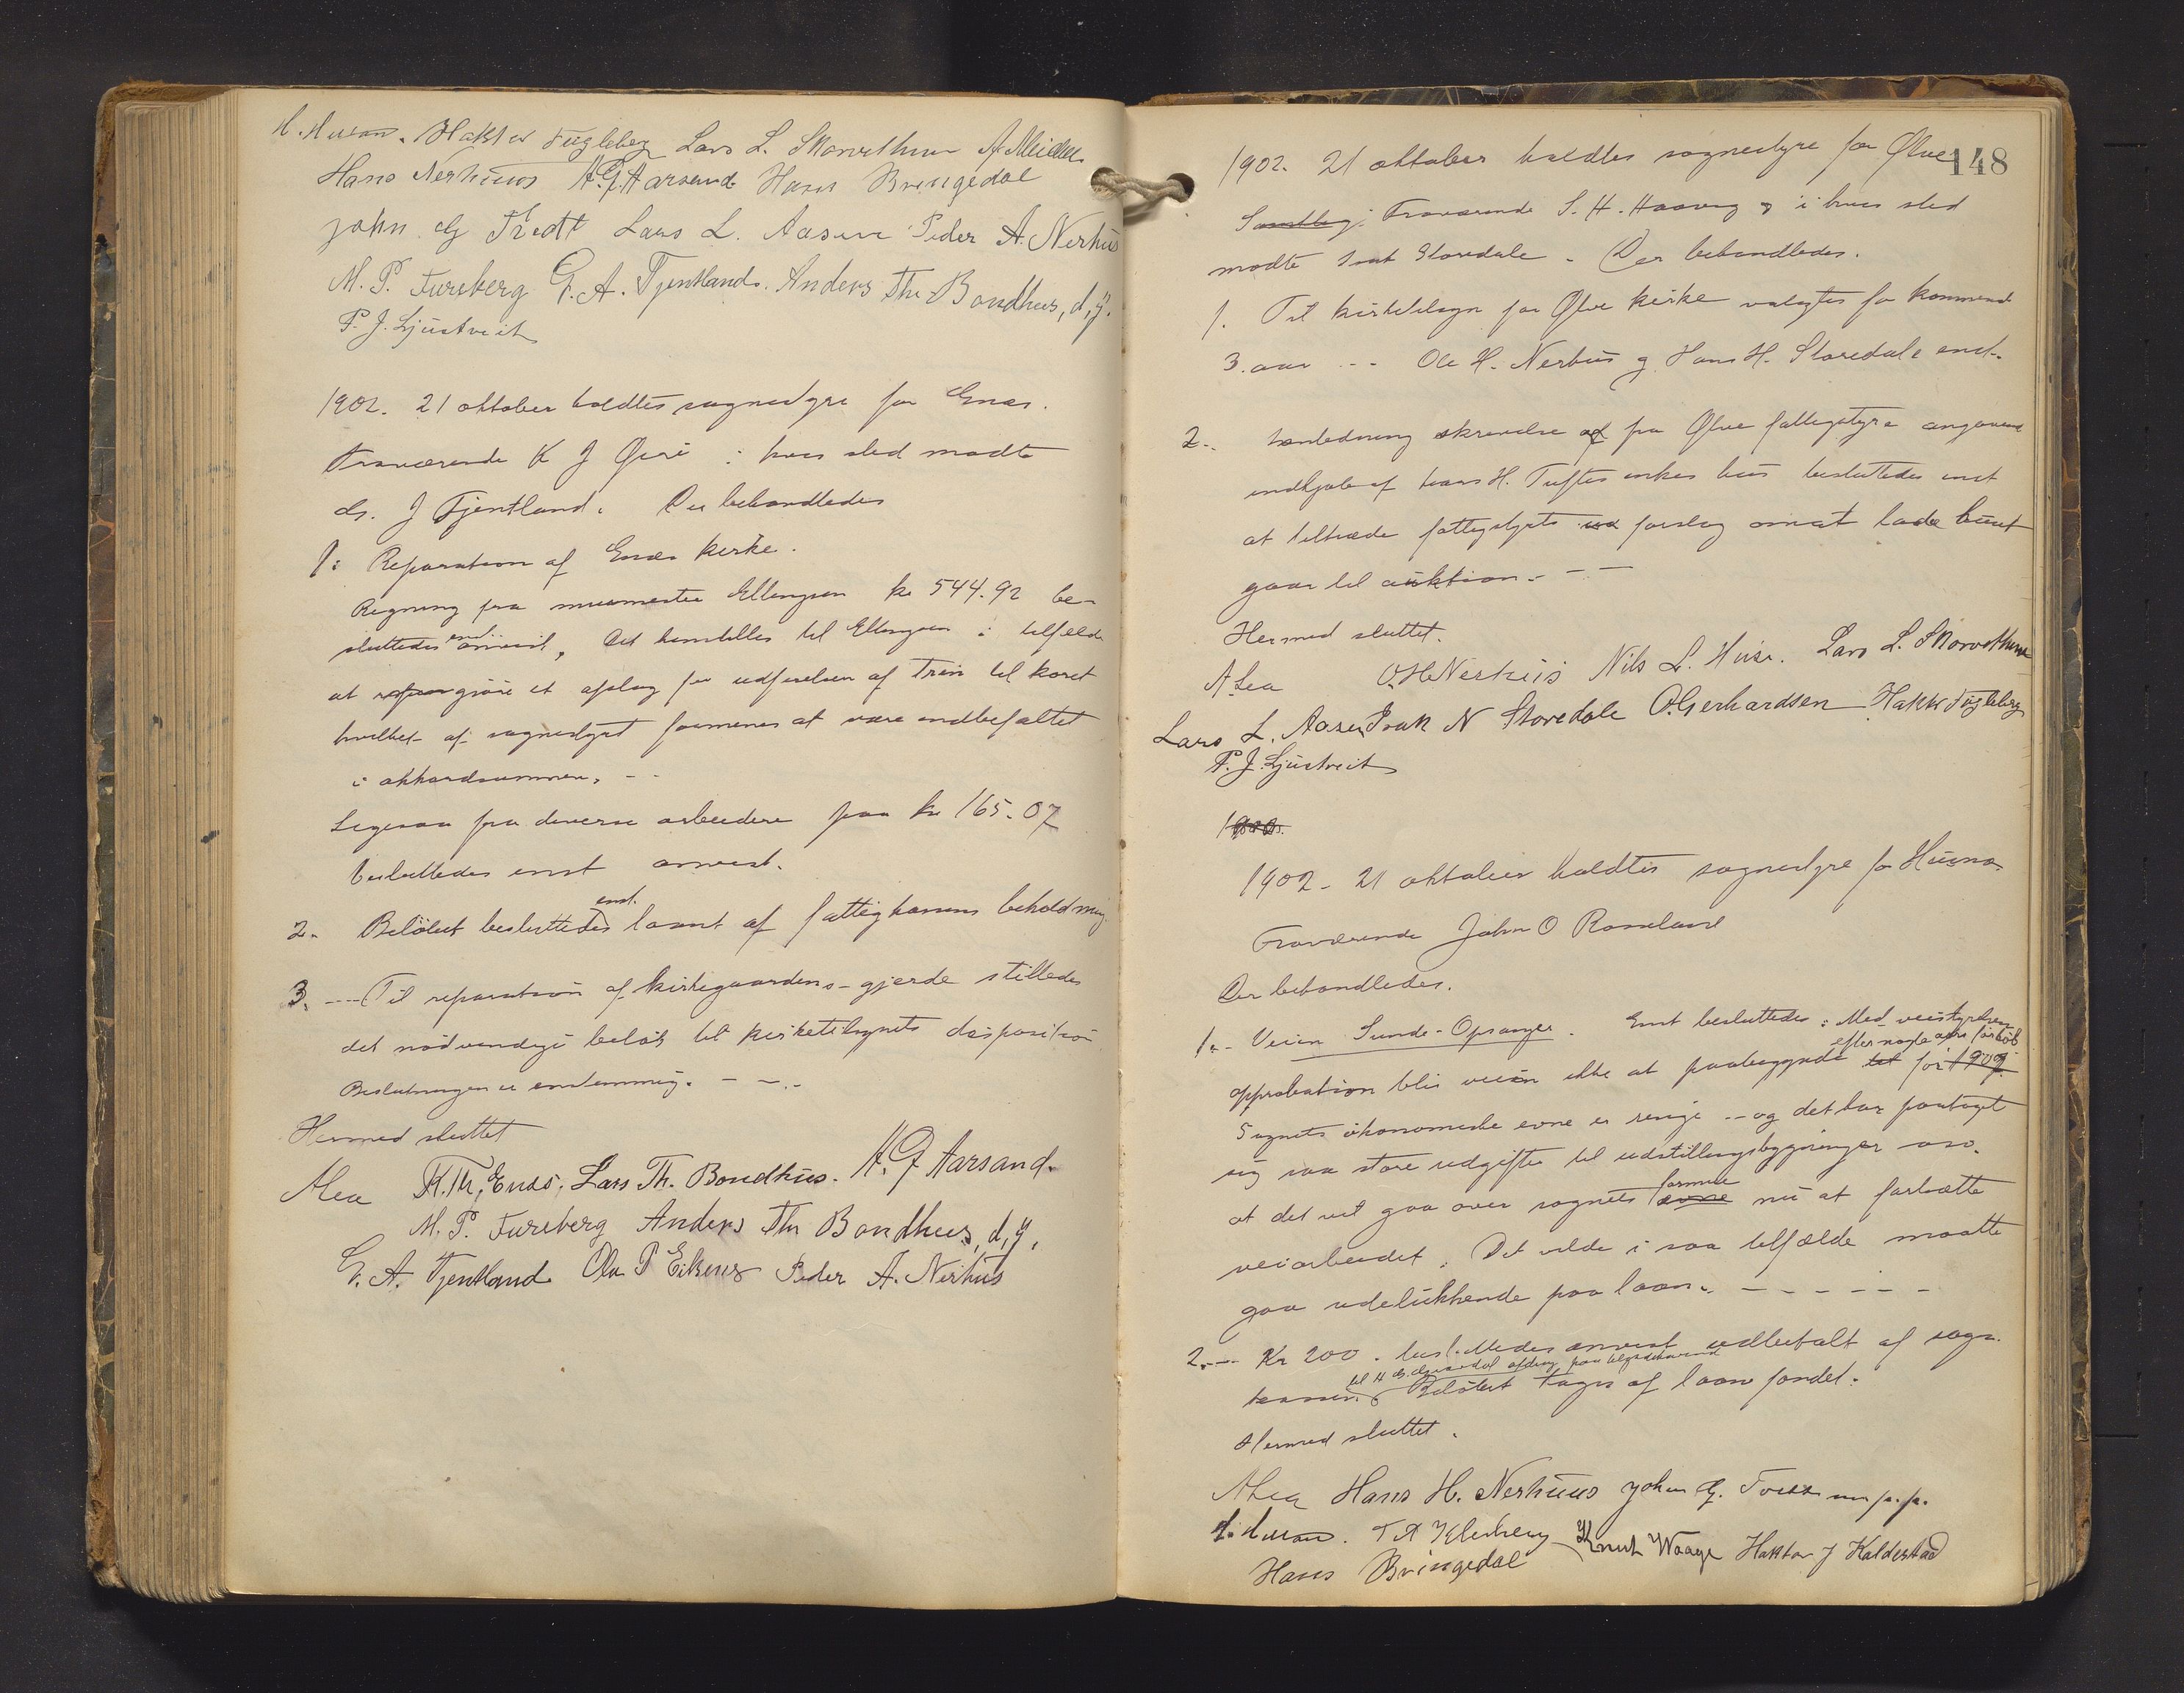 Haktor Fugleberg Lars L. Skorvethun A. Meidell
Hans Nerhuus A. G. Aarsand Hans Bringedal
John G Tvedt Lars L. Aasen Peder A. Nerhus
M. P. Fureberg G. A. Tjentland. Anders Th. Bondhus, d,y.
P. J. Ljustveit
1902. 21 oktober holdtes sognestyre for Enes.
Fraværende K J Øeri i hvis sted mødte
J Tjentland. Der behandledes
1: Reparation af Enes kirke.
Regning fra murmester Ellingsen kr 544.92 be-
sluttedes enst. anvist, Det henstilles til Ellingsen i tilfælde
at gjøre et afslag for udførelsen af Trin til koret
hvilket af sognestyret formenes at være indbefattet
i akkordsummen. --
Ligesaa fra diverse arbeidere paa kr 165.07
besluttedes enst anvist.
2. Beløbet besluttedes enst. laant af fattigkassens beholdning
3. --- Til reparation af kirkegaardens-gjerde stilledes
det nødvendige beløb til kirketilsynets disposition
Beslutningen er enstemmig. - -.-
Hermed sluttet
ALea K. Th. Enes, Lars Th. Bondhus. A. G Aarsand.
M. P. Fureberg Anders Th Bondhus, d,y,
G. A. Tjentland Ola P Eikenes Peder A. Nerhus
148
1902. 21 oktober holdtes sognestyre for Ølve
Samtlig: Fraværende S. H. Haavig og i hvis sted
mødte Ivat Storedale. Der behandledes.
1. Til kirketilsyn for Ølve kirke valgtes for kommende
3. aar --- Ole H. Nerhus og Hans H. Storedale enst.
2. I anledning skrivelse af fra Ølve fattigstyre angaaende
indkjøb af Hans H. Tuftes enkes hus besluttedes enst
at tiltræde fattigstyrets forslag om at lade huset
gaar til auktion. - - -
Hermed sluttet.
A Lea O. H. Nerhus Nils L. Huse. Lars L. Skorvethun
Lars L. Aasen Ivak N Storedale O. Gerhardsen Haktor Fugleberg
P. J. Ljustveit
1902.
1902 - 21 oktober holdtes sognestyre for Husnes
Fraværende John O Røssland
Der behandledes.
1. - Veien Sunde - Opsanger. Enst besluttedes: Med veistyrelsens
efter nogle aars forløb
approbation blir veien ikke at paabegynde før 1909.
Sognets økonomiske evne er ringe -- og det har paataget
sig saa store udgifter til udstillingsbygninger osv.
at det vil gaa over sognets evne formue nu at fortsætte
veiarbeidet. Det vilde i saa tilfælde maatte
gaa udelukkende paa laan. - - - - - -
2. --- Kr 200. besluttedes anvist udbetalt af sogne
kassen. Beløbet tages af laane fondet.
Hermed sluttet.
ALea Hans H. Nerhuus John G. Tvedt m. p. p.
Knut Waage Haktor J Kaldestad
Hans Bringedal